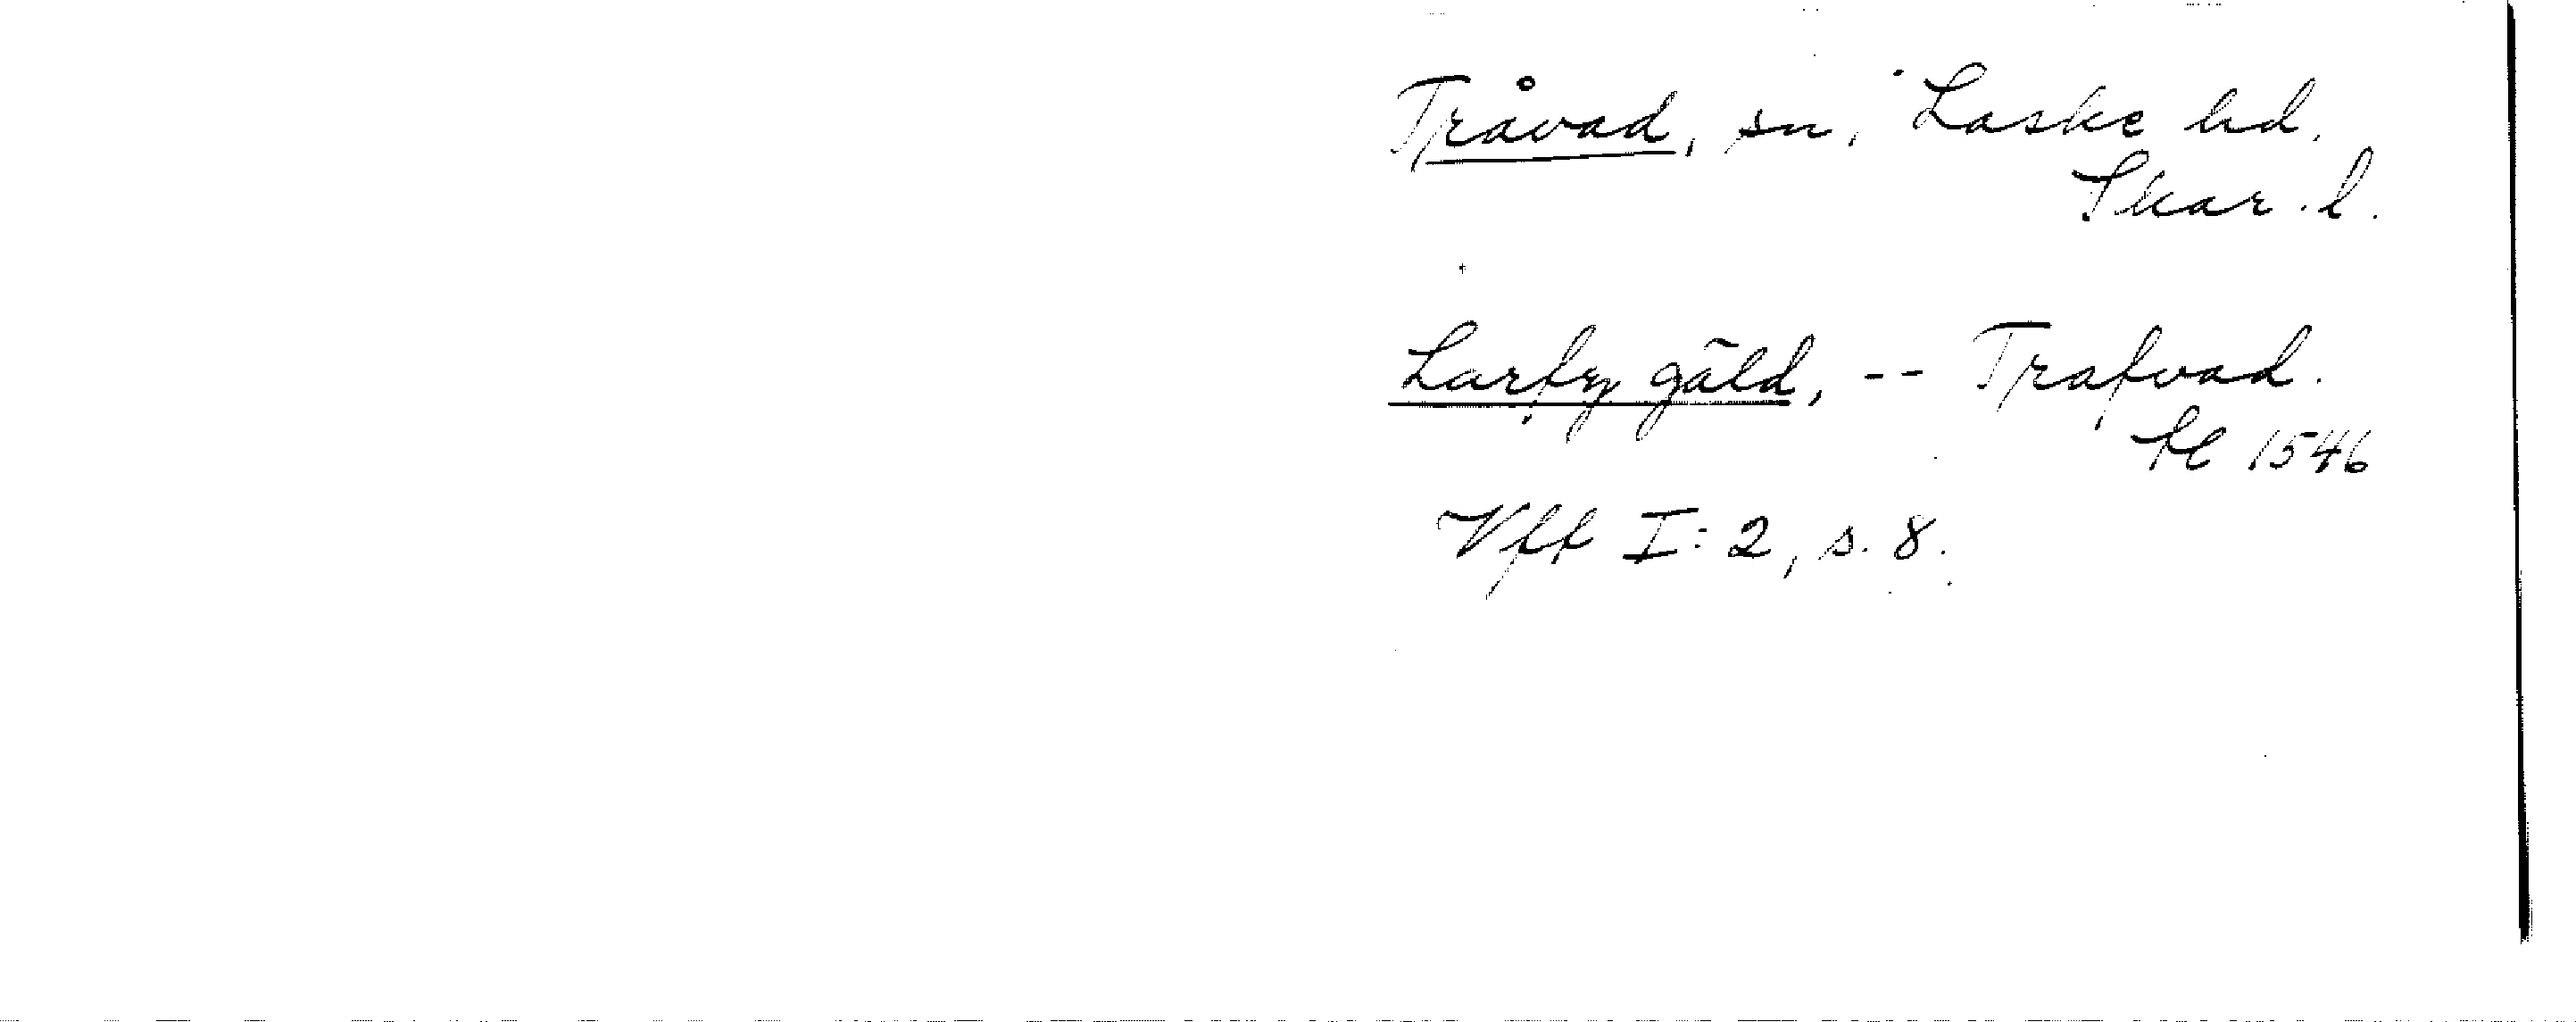 Tråvad, sn, Laske hd.
Skar. l.
Larfzy gäld, -- Trafvad.
fl 1546
Vff I: 2, s. 8.